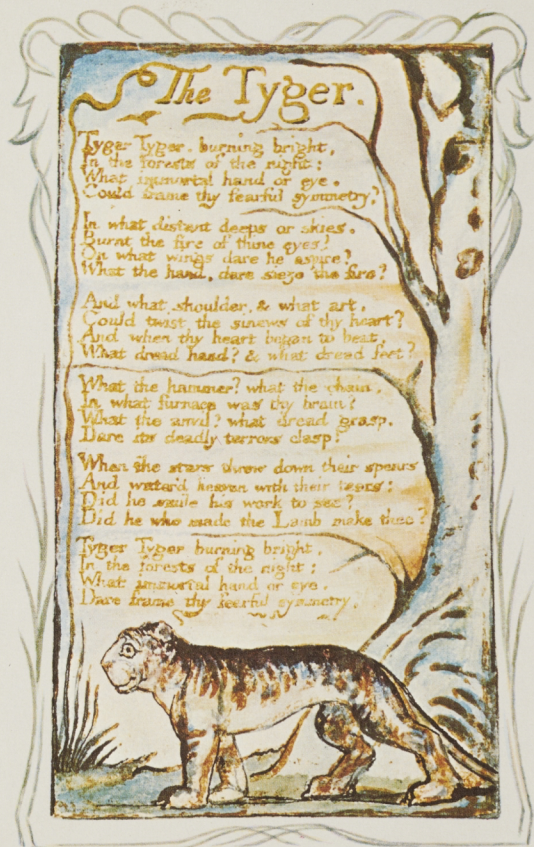 The Tyger.
Tyger Tyger, burning bright,
In the forests of the night:
What immortal hand or eye,
Could frame thy fearful symmetry?
In what distant deeps or skies.
Burnt the fire of thine eyes?
On what wings dare he aspire?
What the hand, dare sieze the fire?
And what shoulder, & what art,
Could twist the sinews of thy heart?
And when thy heart began to beat,
What dread hand? & what dread feet?
What the hammer? what the chain,
In what furnace was thy brain?
What the anvil? what dread grasp,
Dare its deadly terrors clasp!
When the stars threw down their spears
And water'd heaven with their tears:
Did he smile his work to see?
Did he who made the Lamb make thee?
Tyger Tyger burning bright,
In the forests of the night:
What immortal hand or eye,
Dare frame thy fearful symmetry.